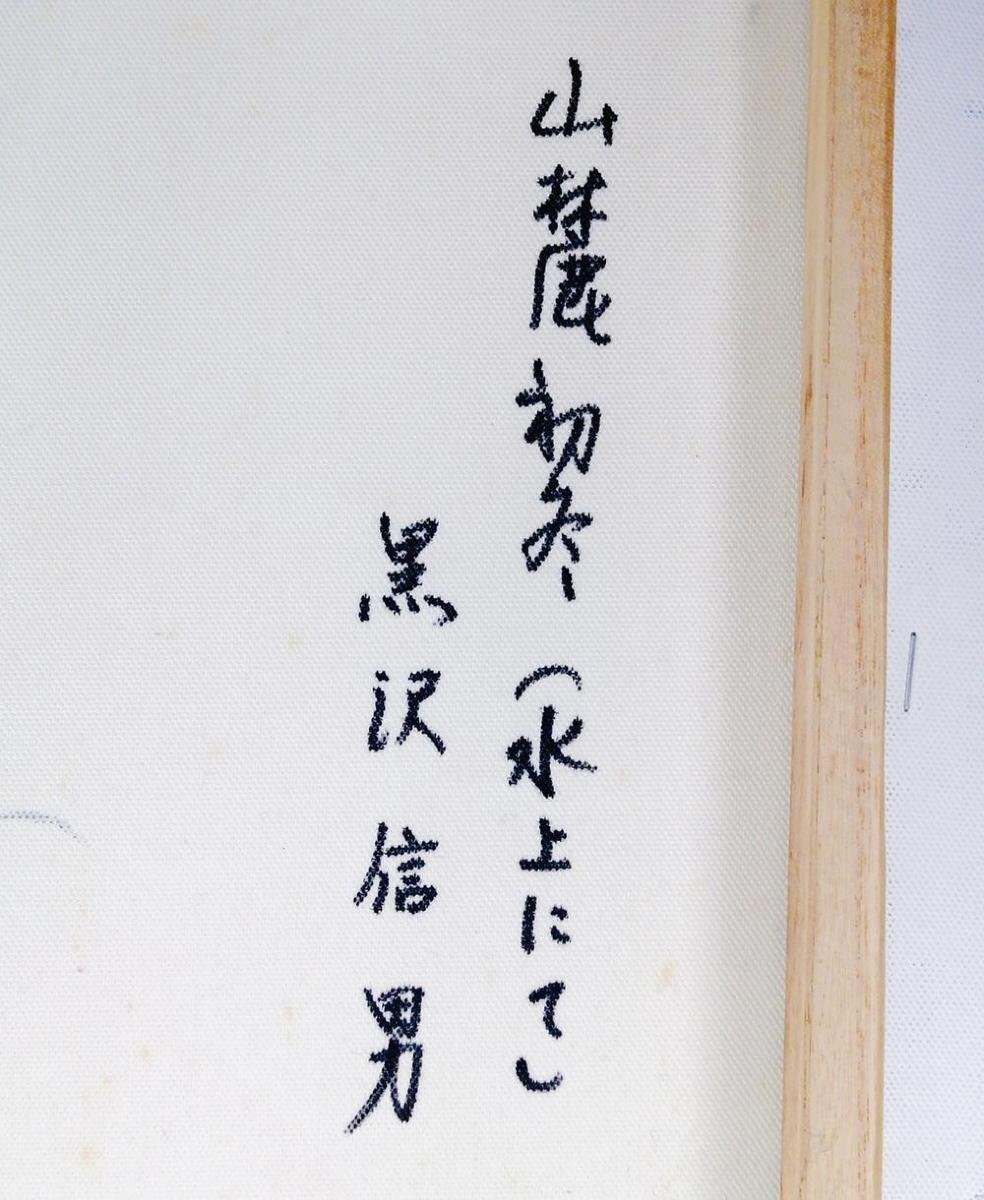 山麓初冬(水上にて)
黒沢信男